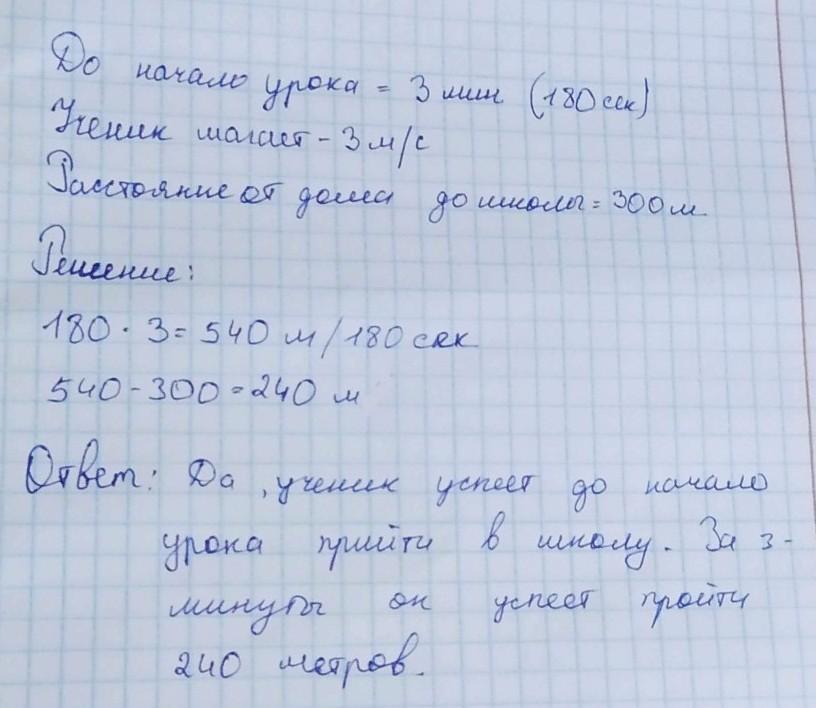 До начало урока = 3 мин (180 сек)
Ученик шагает - 3 м/с
Расстояние от дома до школы = 300 м
Решение:
180 · 3 = 540 м/180 сек
540 - 300 = 240 м
Ответ: Да, ученик успеет до начало
урока прийти в школу. За 3-
минуты он успеет пройти
240 метров.